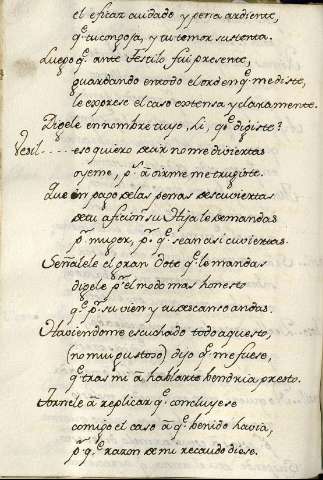 el eficaz cuidado y pena ardiente,
q̃ tu congoja, y tu temor sustenta.
Luego q̃ ante Festilo fui presente,
guardando en todo el orden q̃ me diste,
le exprese el caso extensa y claramente.
Digele en nombre tuyo, Li, q̃ digiste?
Vesil..... eso quiero decir no me diviertas
oyeme, p.ˢ â oirme me trugiste.
Que en pago de las penas descuviertas
de tu aficion su Hija le demandas
p.ʳ muger, p.ʳ q̃ sean asi cuviertas.
Señalele el gran dote q̃ le mandas
digele p.ʳ el modo mas honesto
q̃ p.ʳ su vien y tu descanso andas.
Haviendome escuchado todo aquesto,
(no mui gustoso) dijo q̃ me fuese,
q̃ tras mi â hablarte bendria presto.
Tornele â replicar q̃ concluyese
comigo el caso â q̃ benido havia,
p.ʳ q̃ razon de mi recaudo diese.